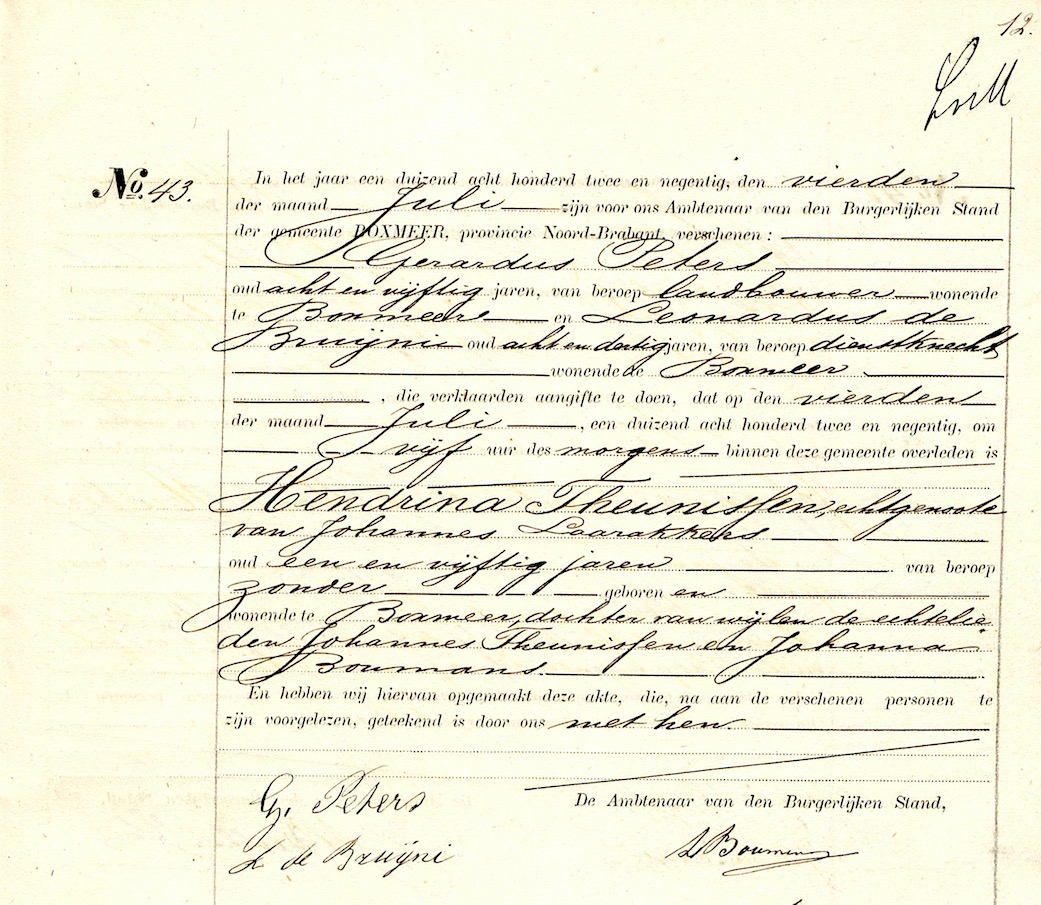 12.
No. 43.
In het jaar een duizend acht honderd twee en negentig, den vierden
der maand Juli zijn voor ons Ambtenaar van den Burgerlijken Stand
der gemeente BOXMEER, provincie Noord-Brabant, verschenen :
Gerardus Peters
oud acht en vijftig jaren, van beroep landbouwer wonende
te Boxmeer en Leonardus de
Bruijni oud acht en dertig jaren, van beroep dienstknecht
wonende te Boxmeer
, die verklaarden aangifte te doen, dat op den vierden
der maand Juli , een duizend acht honderd twee en negentig, om
vijf uur des morgens binnen deze gemeente overleden is
Hendrina Theunissen, echtgenoote
van Johannes Laarakkers
oud een en vijftig jaren van beroep
zonder geboren en
wonende te Boxmeer, dochter van wijlen de echtelie
den Johannes Theunissen en Johanna
Boumans.
En hebben wij hiervan opgemaakt deze akte, die, na aan de verschenen personen te
zijn voorgelezen, geteekend is door ons met hen.
G. Peters
De Ambtenaar van den Burgerlijken Stand,
L de Bruijni